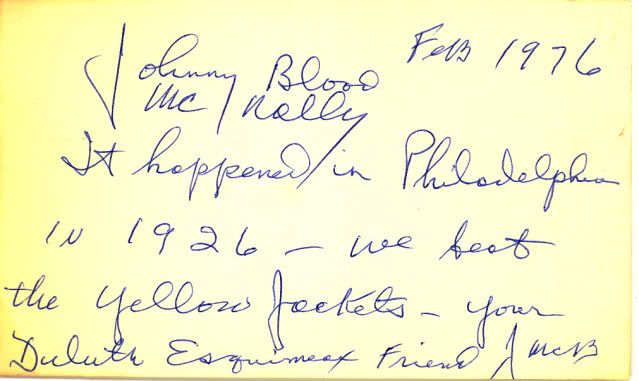 Feb 1976
Johnny Blood
Mc Nally
It happened in Philadelphia
in 1926 - we beat
the Yellow Jackets - your
Duluth Esquimeax Friend J McB